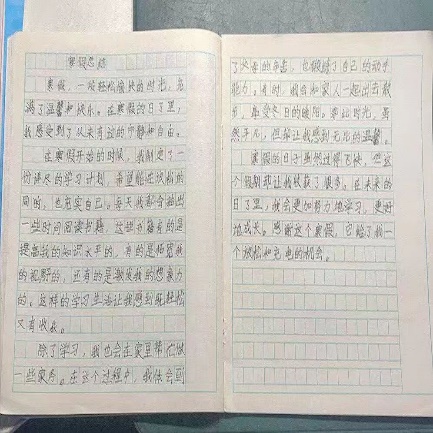 寒假总结
寒假，一段轻松愉快的时光，充
满了温馨和快乐。在寒假的日子里，
我感受到了从未有过的宁静和自由。
在寒假开始的时候，我制定了一
份详尽的学习计划，希望能在放松的
同时，也充实自己。每天我都会抽出
一些时间阅读书籍，这些书籍有的是
提高我的知识水平的，有的是拓宽我
的视野的，还有的是激发我的想象力
的。这样的学习生活让我感到既轻松
又有收获。
除了学习，我也会在家里帮忙做
一些家务。在这个过程中，我体会到
了父母的辛苦，也锻炼了自己的动手
能力。有时，我会和家人一起出去散
步，享受冬日的暖阳。那些时光，虽
然平凡，但却让我感到无比的温馨。
寒假的日子虽然过得飞快，但这
个假期却让我收获了很多。在未来的
日子里，我会更加努力地学习，更好
地成长。感谢这个寒假，它给了我一
个放松和充电的机会。